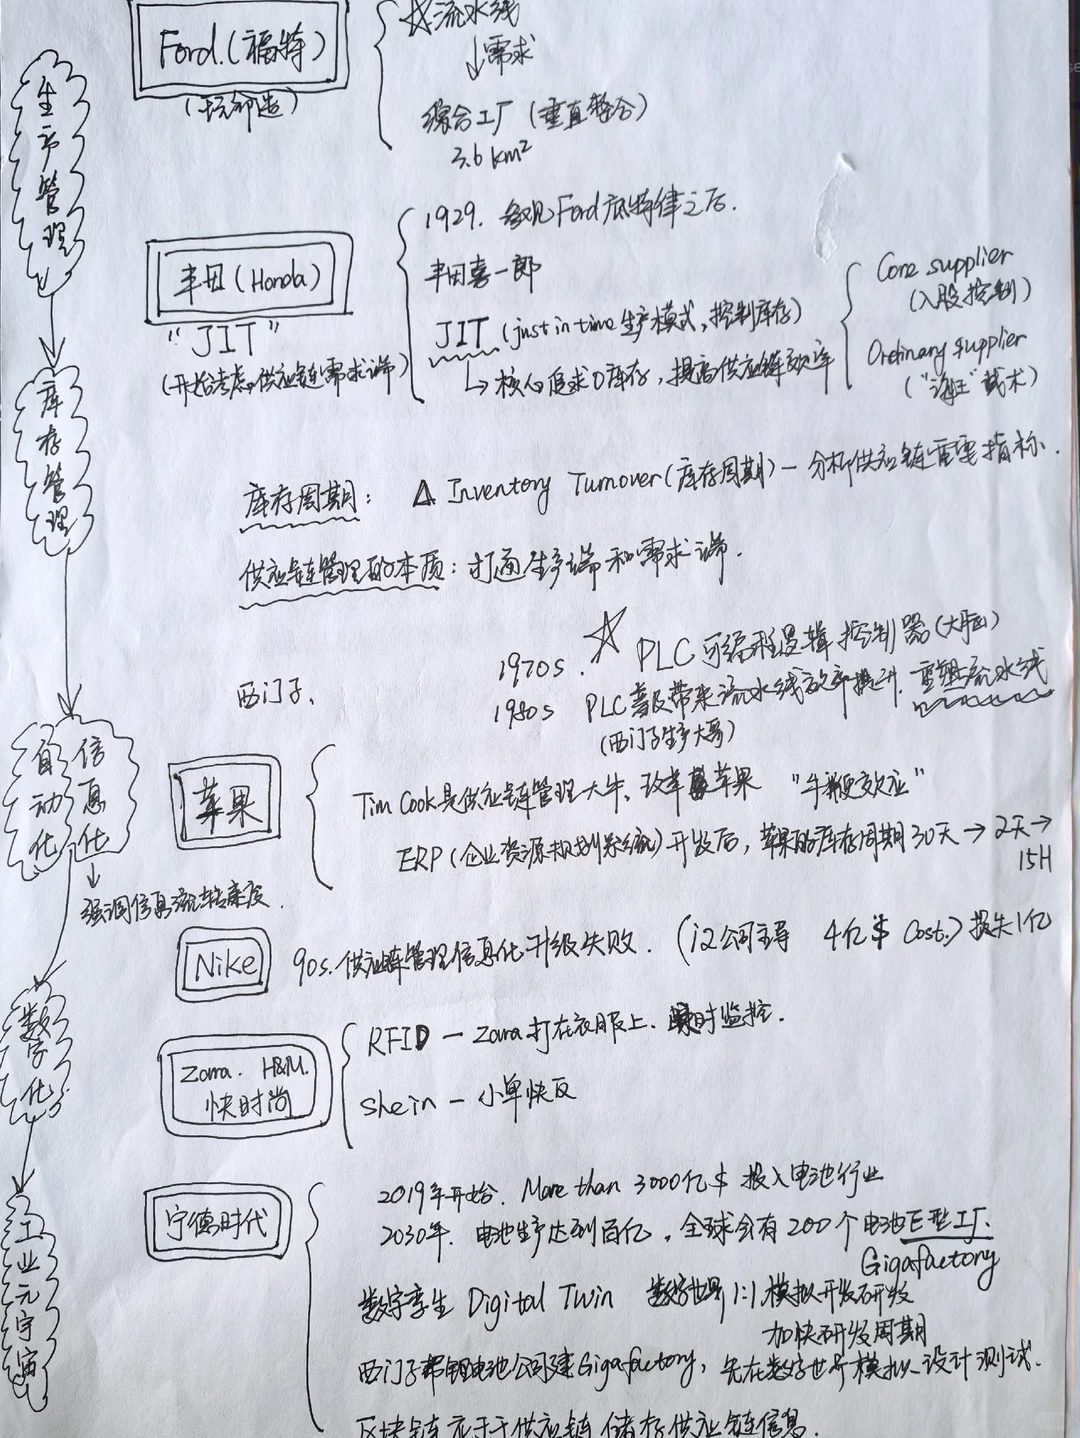 生产管理
库存管理
自动化
信息化
强调信息流转速度.
数字化
工业元宇宙
Ford.(福特)
☆流水线
↓需求
综合工厂(垂直整合)
3.6 km²
丰田(Honda)
"JIT"
(开始考虑供应链需求端)
1929. 参观Ford底特律之后.
丰田喜一郎
JIT (just in time 生产模式,控制库存)
↳ 核心追求0库存,提高供应链效率
Core supplier
(入股控制)
Ordinary supplier
("海王"战术)
库存周期: △ Inventory Turnover(库存周期) — 分析供应链重要指标.
供应链管理的本质: 打通生产端和需求端.
西门子.
1970s. ☆ PLC可编程逻辑控制器(大脑)
1980s PLC普及带来流水线效率提升. 重塑流水线
(西门子生产大哥)
苹果
Tim Cook是供应链管理大牛、改革苹果 "牛鞭效应"
ERP(企业资源规划系统)开发后,苹果的库存周期30天→2天→
15H
Nike
90s.供应链管理信息化升级失败. (i2公司主导 4亿$ Cost.) 损失1亿
Zara. H&M.
快时尚
RFID — Zara打在衣服上.时监控.
Shein — 小单快反
宁德时代
2019年开始. More than 3000亿$ 投入电池行业
2030年. 电池生产达到百亿,全球会有200个电池巨型工厂.
Gigafactory
数字孪生 Digital Twin 数字世界1:1.模拟开发研发
加快研发周期
西门子帮锂电池公司建Gigafactory,先在数字世界模拟、设计测试.
区块链应于于供应链 储存供应链信息.